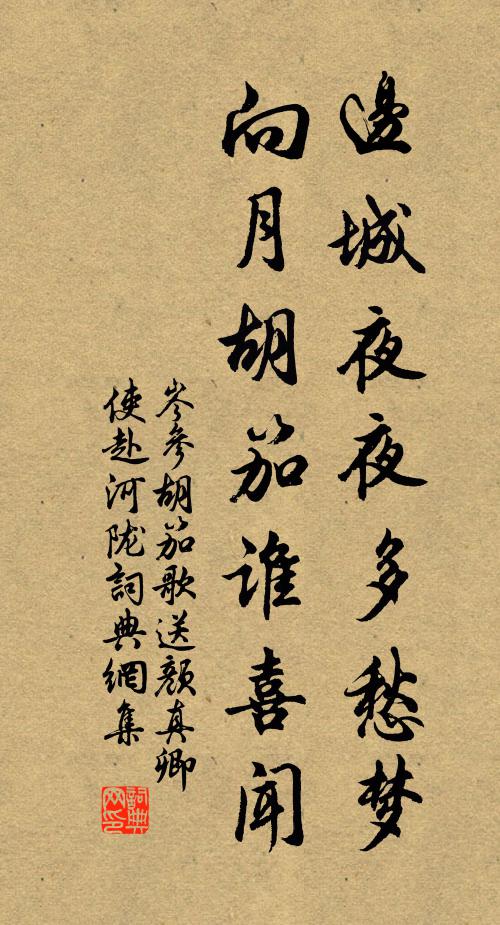 邊城夜夜多愁梦
向月胡笳誰喜聞
岑參胡笳歌送顏真卿
使赴河陇詞典網集
詞典
网印